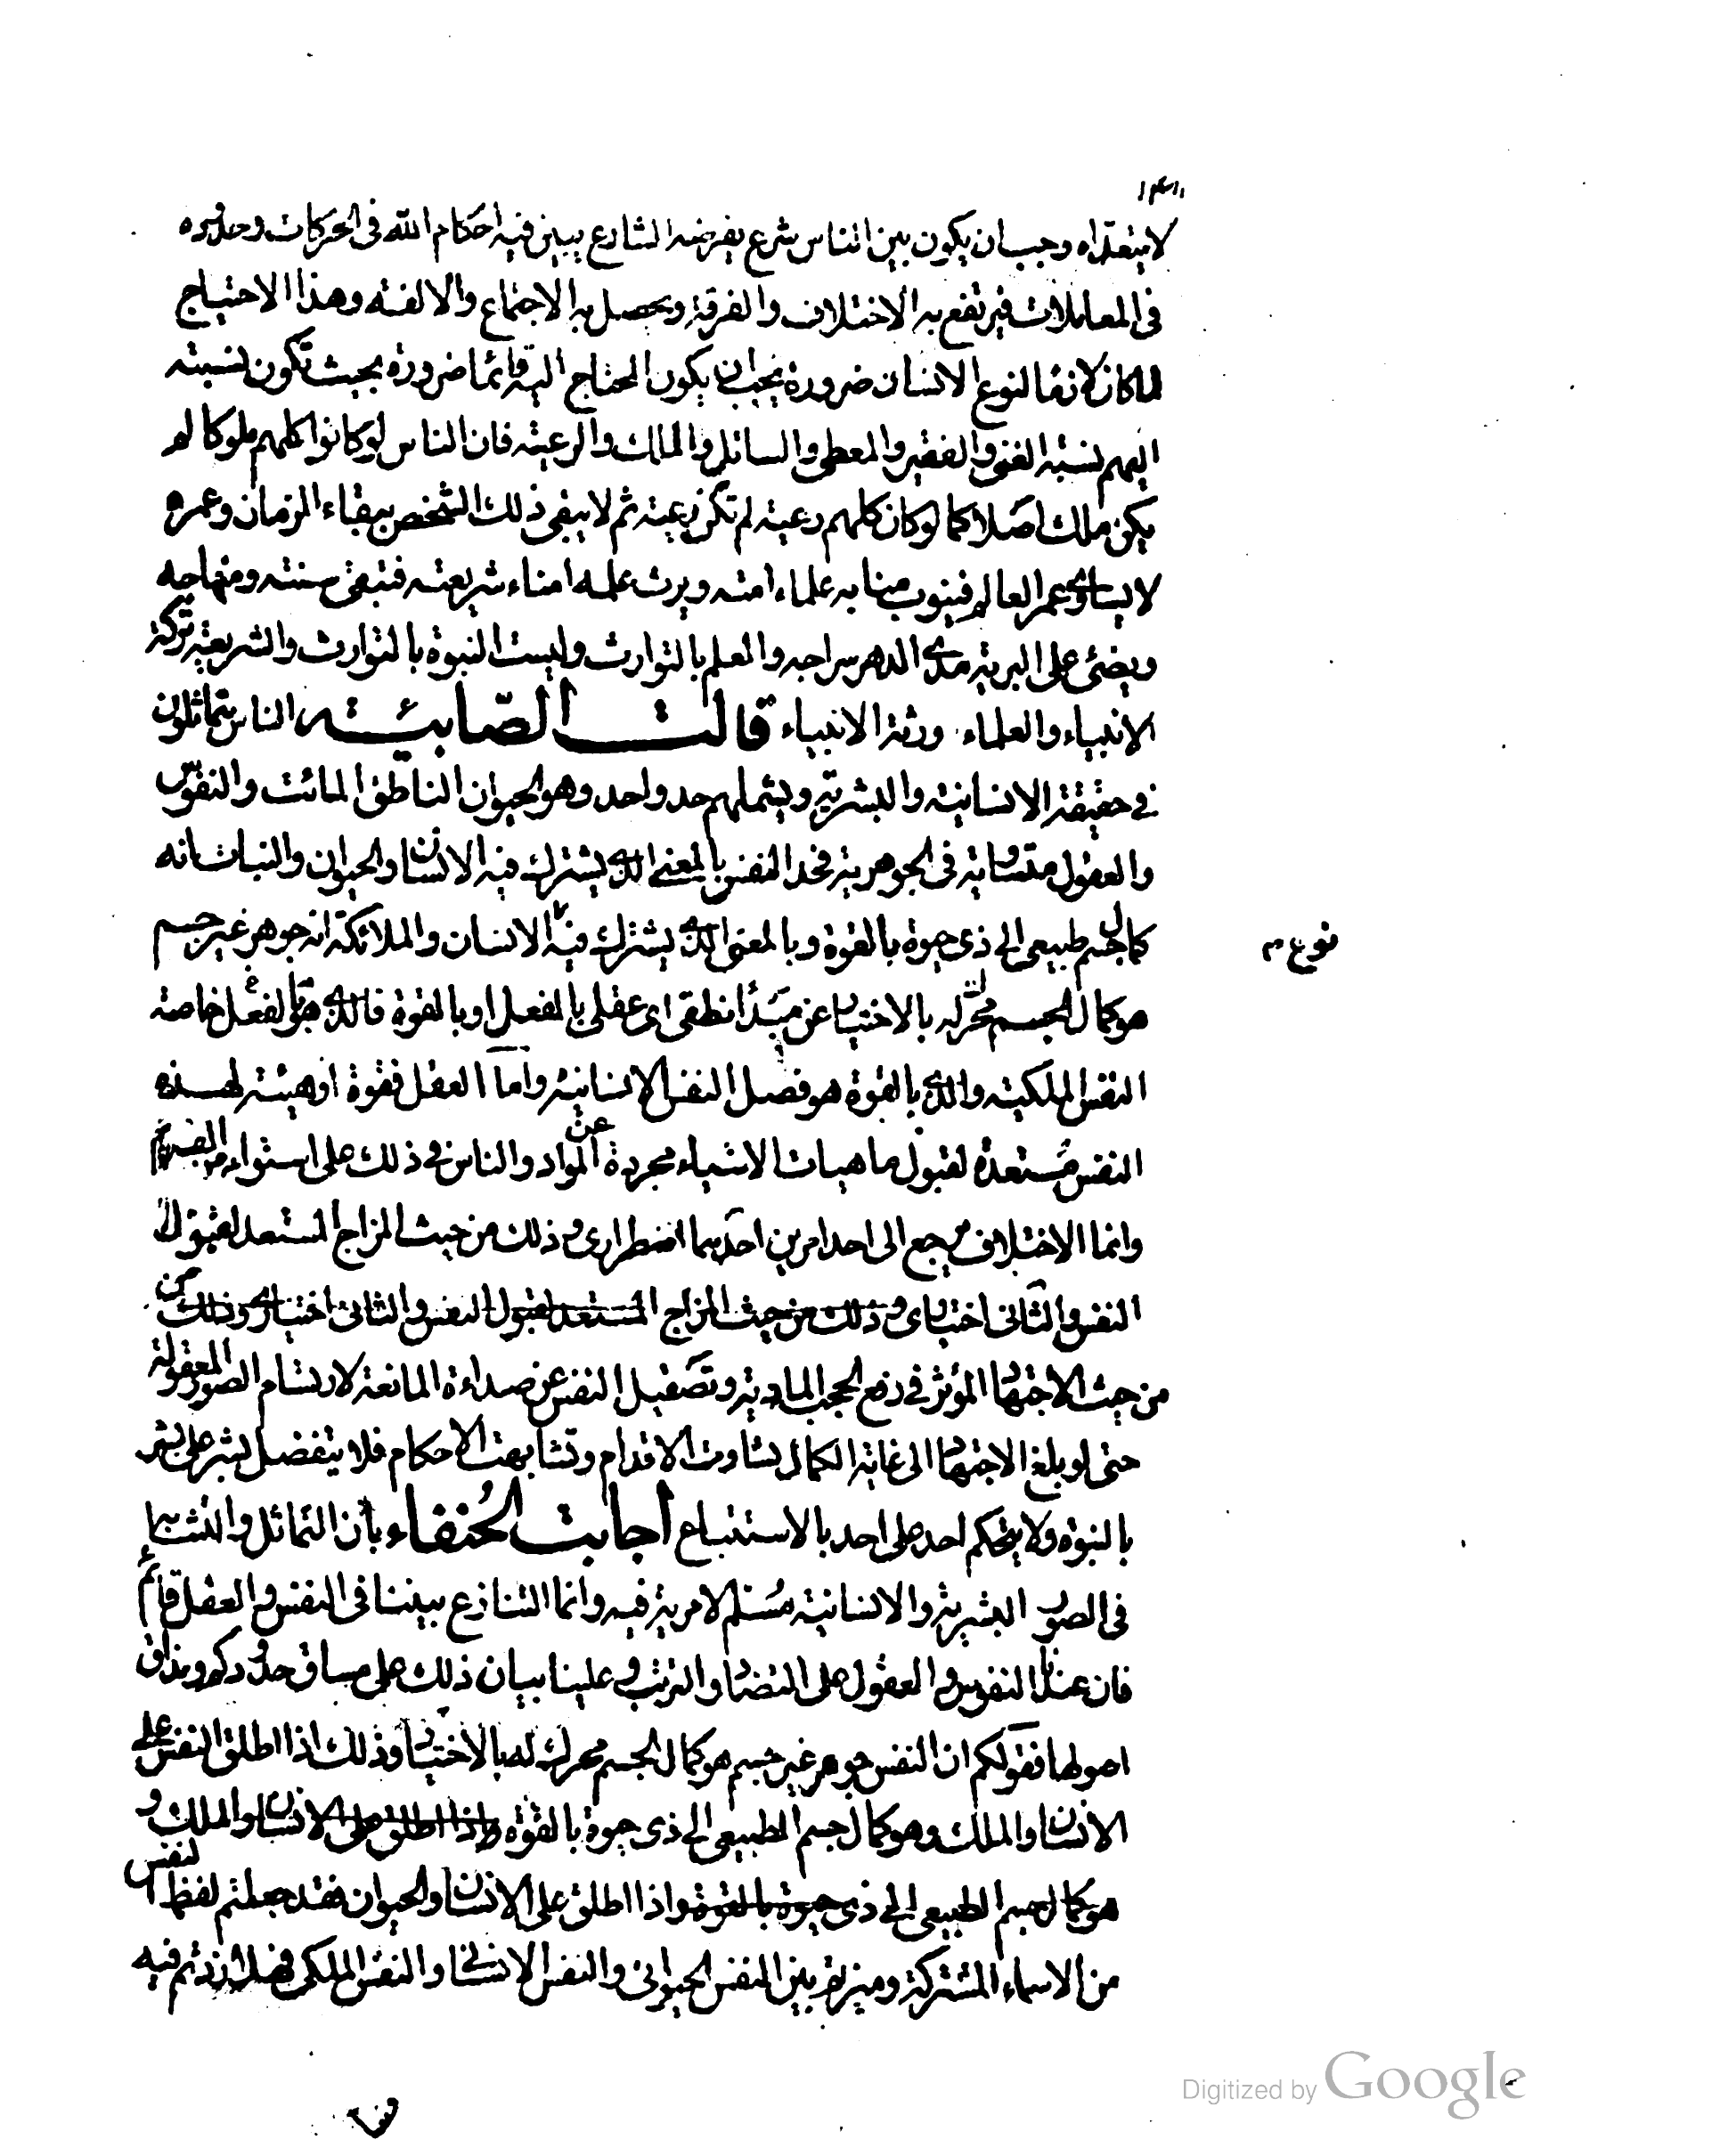 لا يتعداه وجب ان يكون بين الناس شرع يفرضه الشارع يبين فيه احكام الله في الحركات وحدوده
في المعاملات فيرتفع به الاختلاف والفرقة ويحصل به الاجتماع والالفة وهذا الاحتياج
لما كان لازما لنوع الانسان ضرورة يجب ان يكون المحتاج اليه قائما ضرورة بحيث تكون نسبته
اليهم نسبة الغنى والفقير والمعطى والسائل والمالك والرعية فان الناس لو كانوا كلهم ملوكا لم
يكن ملك اصلا كما لو كان كلهم رعية لم تكن رعية ثم لا يبقى ذلك الشخص ببقاء الزمان وعمره
لا يساوى عمر العالم فينوب منابه علماء امته ويرث علمه امناء شريعته فتبقى سنته ومنهاجه
ويضئ على البرية مدى الدهر سراجه والعلم بالتوارث وليست النبوة بالتوارث والشريعة تركة
الانبياء والعلماء ورثة الانبياء قالت الصابئة الناس يتماثلون
في حقيقة الانسانية والبشرية ويشملهم حد واحد وهو الحيوان الناطق المائت والنفوس
والعقول متساوية في الجوهرية فحد النفس بالمعنى الذي يشترك فيه الانسان والحيوان والنبات انه
كمال جسم طبيعى الى ذى حيوة بالقوة وبالمعنى الذي يشترك فيه الانسان والملائكة انه جوهر غير جسم
نوع م
هو كمال الجسم محرك له بالاختيار عن مبدأ نطقى اى عقلى بالفعل او بالقوة فالذي هو بالفعل خاصة
النفس الملكية والذي بالقوة هو فصل النفس الانسانية واما العقل فقوة او هيئة لهذه
النفس مستعدة لقبول ماهيات الاشياء مجردة عن المواد والناس في ذلك على استواء من القسم
وانما الاختلاف يرجع الى احد امرين احدهما اضطرارى وذلك من حيث المزاج المستعد لقبول
النفس والثانى اختيارى وذلك من حيث المزاج المستعد لقبول النفس والثانى اختيارى وذلك
من حيث الاجتهاد المؤثر في رفع الحجب المادية وتصقيل النفس عن صداءة المانعة لارتسام الصور المعقولة
حتى لو بلغ الاجتهاد الى غاية الكمال تساوت الاقدام وتشابهت الاحكام فلا يتفضل بشر على بشر
بالنبوة ولا يتحكم احد على احد بالاستتباع اجابت الحنفاء بأن التماثل والتشابه
في الصور البشرية والانسانية مسلم لا مرية فيه وانما التنازع بيننا في النفس والعقل قائم
فان عندنا النفوس والعقول على التضاد والترتب وعلينا بيان ذلك على مساق حدودكم ومذاق
اصولها فقولكم ان النفس جوهر غير جسم هو كمال الجسم محرك له بالاختيار وذلك اذا اطلق النفس على
الانسان والملك وهو كمال جسم الطبيعى الى ذى حيوة بالقوة واذا اطلق على الانسان والملك و
هو كمال جسم الطبيعى الى ذى حيوة بالقوة واذا اطلق على الانسان والحيوان فقد جعلتم لفظ النفس
من الاسماء المشتركة وميزتم بين النفس الحيوانى والنفس الانسانى والنفس الملكى فهلا زدتم فيه
Digitized by Google